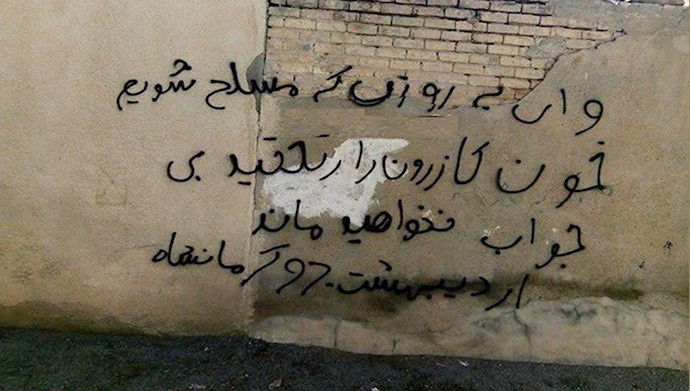 وای به روزی که مسلح شویم
خون کازرون را ریختید بی
جواب نخواهید ماند
اردیبهشت کرمانشاه